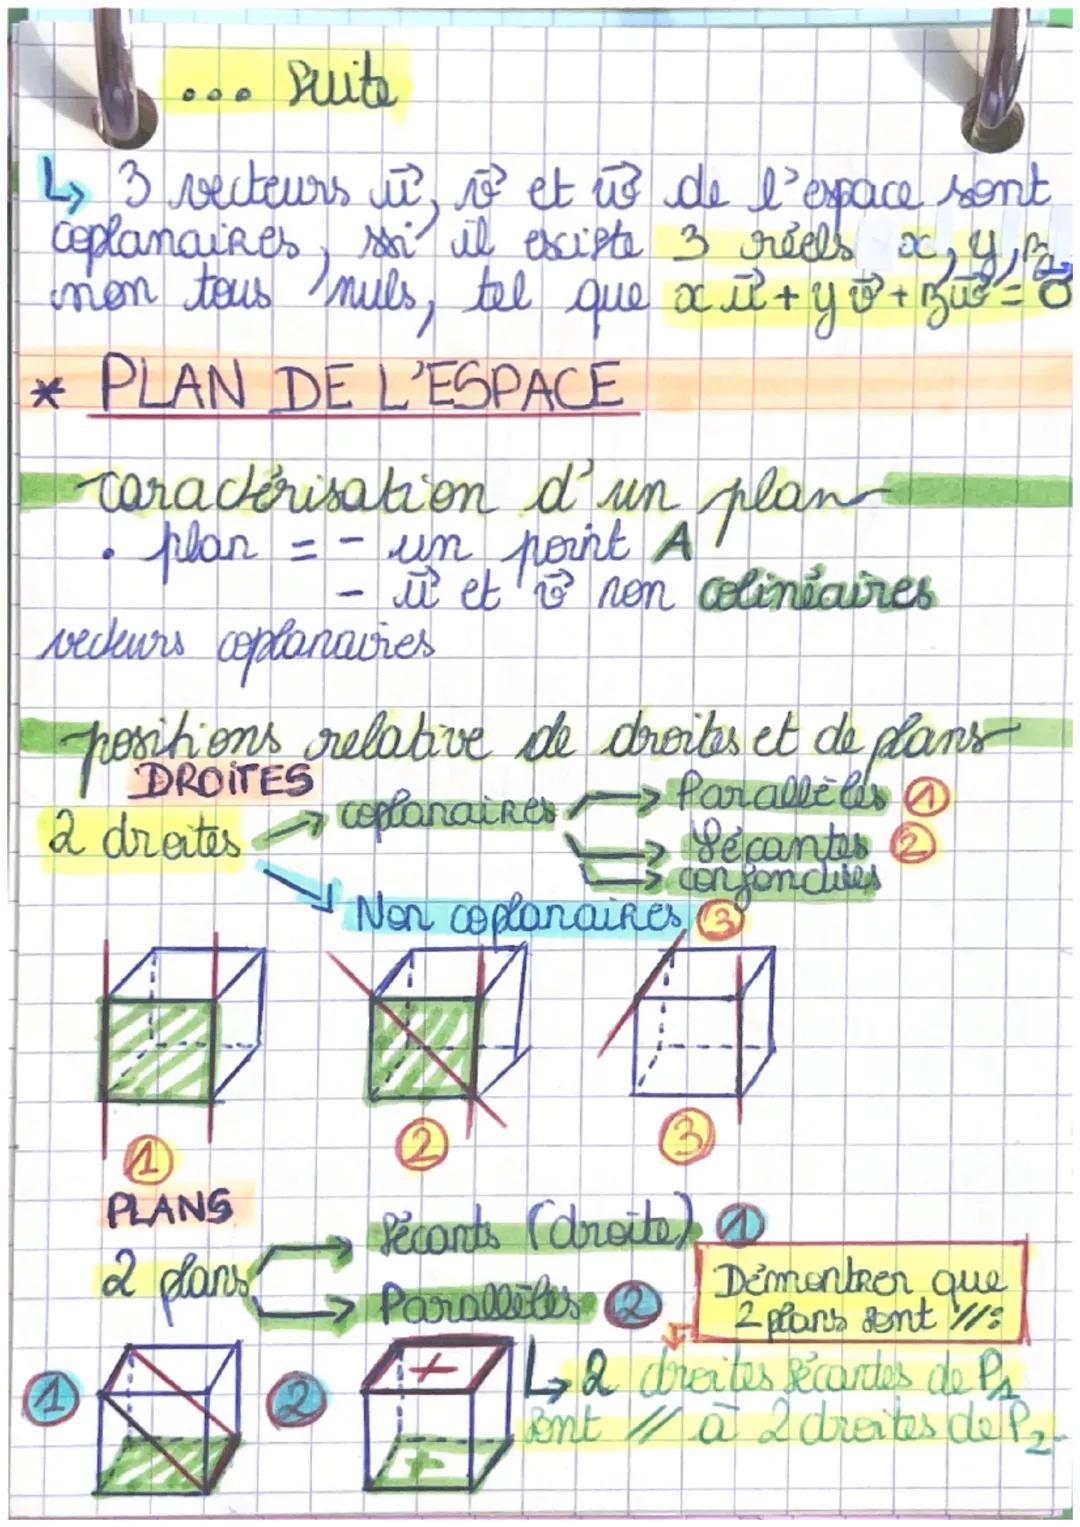 ... Suite
↳ 3 vecteurs u⃗, v⃗ et w⃗ de l'espace sont
coplanaires, ssi il existe 3 réels x, y, z
non tous nuls, tel que x u⃗ + y v⃗ + z w⃗ = 0⃗
* PLAN DE L'ESPACE
caractérisation d'un plan
• plan = - un point A
- u⃗ et v⃗ non colinéaires
vecteurs coplanaires
positions relative de droites et de plans
DROITES
2 droites → coplanaires → Parallèles 1
→ Sécantes 2
→ confondues
→ Non coplanaires 3
1 2 3
PLANS
2 plans → Sécants (droite) 1
→ Parallèles 2
Démontrer que
2 plans sont //:
1 2 ↳ 2 droites sécantes de P1
sont // à 2 droites de P2